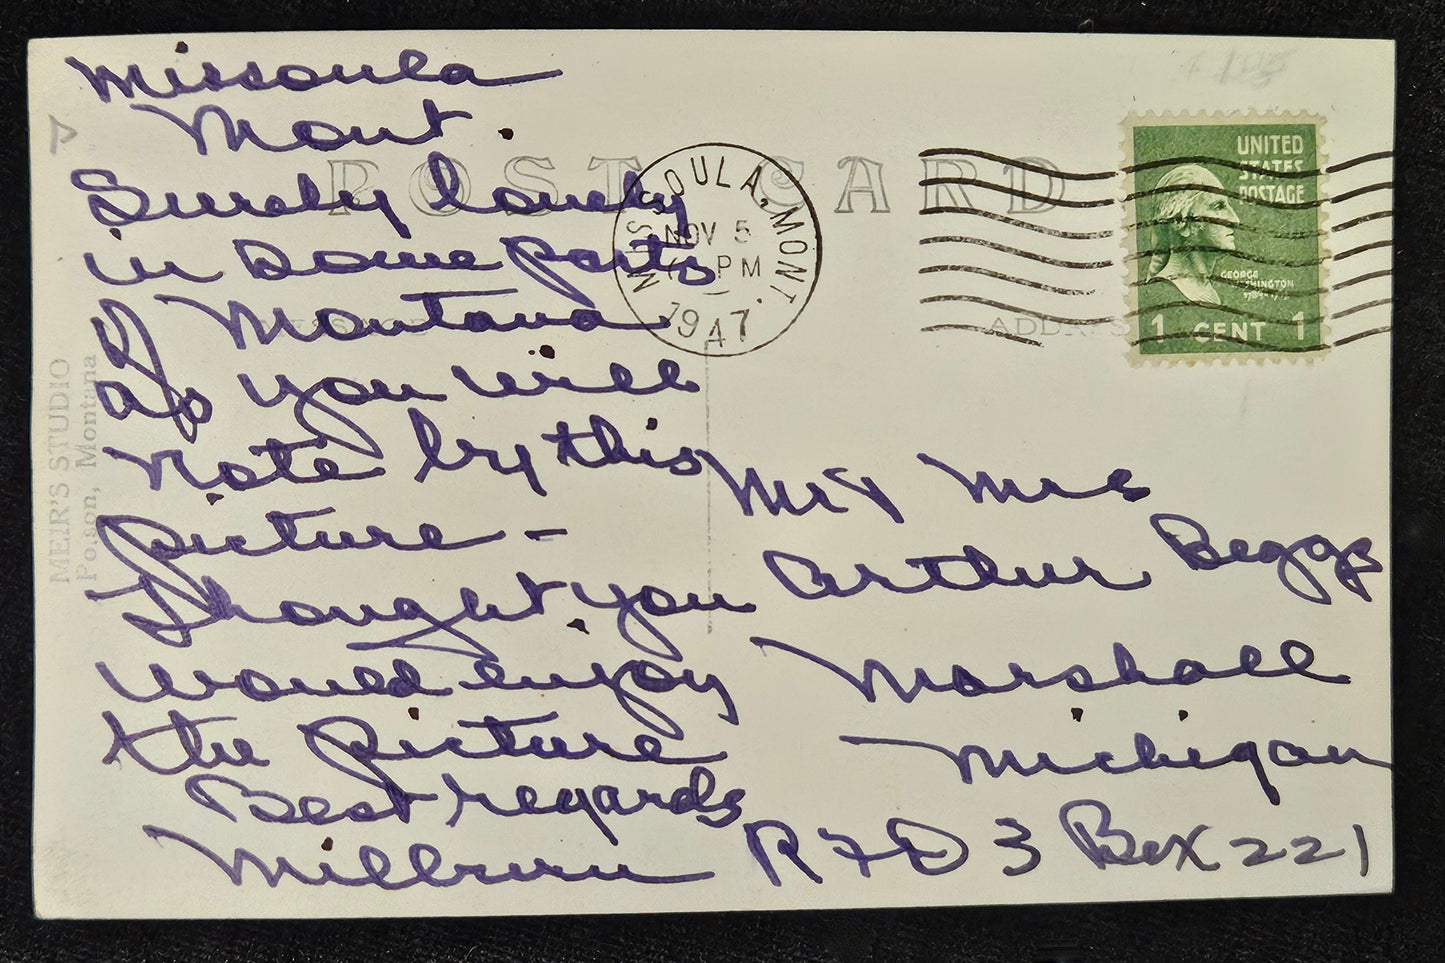 Missoula
Mont.
Surely lonely
in some parts
of Montana
as you will
note by this
picture -
Thought you
would enjoy
the picture
Best regards
Milburn
Mr & Mrs
Arthur Beggs
Marshall
Michigan
RFD 3 Box 221
POST CARD
MISSOULA, MONT.
NOV 5
PM
1947
UNITED
STATES
POSTAGE
GEORGE
WASHINGTON
1 CENT 1
ADDRESS
MEIR'S STUDIO
Polson, Montana